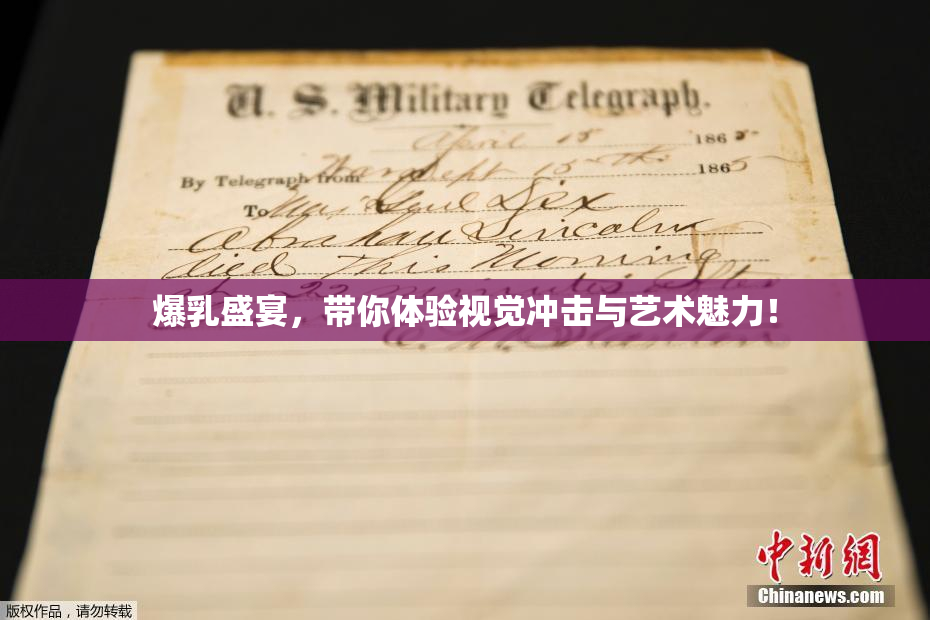 U. S. Military Telegraph.
April 15 1865
By Telegraph from War Dept 15th 1865
To Maj Genl Dix
Abraham Lincoln
died This Morning
at 22 minutes after
爆乳盛宴，带你体验视觉冲击与艺术魅力！
中新網
Chinanews.com
版权作品，请勿转载